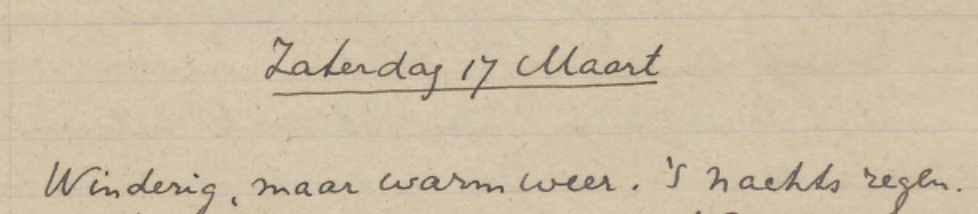 Zaterdag 17 Maart
Winderig, maar warm weer. 's nachts regen.